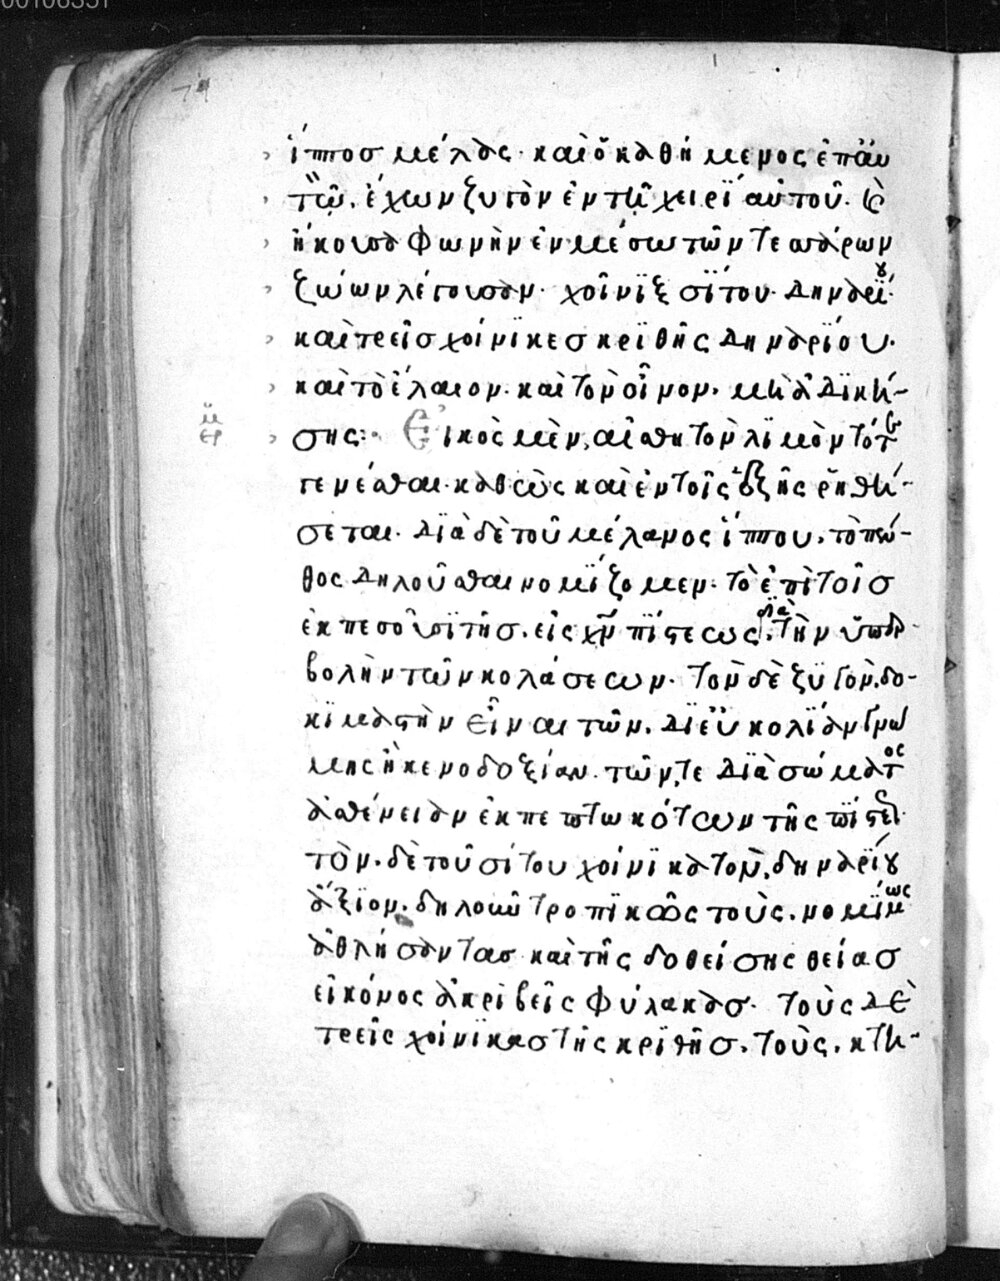 ἵπποσ μέλας· καὶ ὁ καθήμενος ἐπ' αὐ
τῶ. ἔχων ζυγὸν ἐν τῆ χειρὶ αὐτοῦ. καὶ
ἤκουσα φωνὴν ἐν μέσω τῶν τεσσάρων
ζώων λέγουσαν· χοῖνιξ σίτου δηναρίου·
καὶ τρεῖσ χοίνικεσ κριθῆς δηναρίου.
καὶ τὸ ἔλαιον· καὶ τὸν οἶνον· μὴ ἀδική-
σης:· Εἰκὸς μὲν, αἰσθητὸν λιμὸν τότε
γενέσθαι· καθὼς καὶ ἐν τοῖς ἑξῆς ῥηθή-
σεται· διὰ δὲ τοῦ μέλανος ἵππου, τὸ πέν-
θος δηλοῦσθαι νομίζομεν· τὸ ἐπὶ τοῖσ
ἐκπεσοῦσι τῆσ εἰς χν πίστεως, διὰ τὴν ὑπερ-
βολὴν τῶν κολάσεων· τὸν δὲ ζυγὸν, δο-
κιμαστὴν εἶναι τῶν, δι' εὐκολίαν γνώ
μης ἢ κενοδοξίαν· τῶν τε διὰ σώματος
ἀσθένειαν ἐκπεπτωκότων τῆς πίστεως·
τὸν δὲ τοῦ σίτου χοίνικα τὸν, δηναρίου
ἄξιον· δηλοῦν τροπικῶς τοὺς, νομίμως
ἀθλήσαντασ καὶ τῆς δοθείσης θείασ
εἰκόνος ἀκριβεῖς φύλακασ· τοὺς δὲ
τρεῖς χοίνικασ τῆς κριθῆσ, τοὺς, κτη-